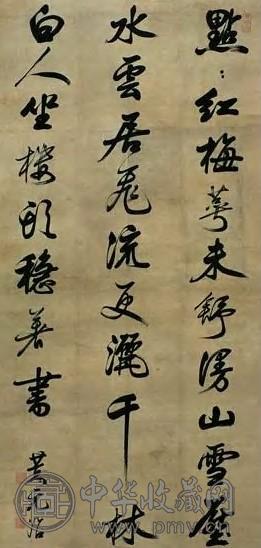 點〻紅梅萼未舒漫山雪屋
水雲居飛流更灑千林
白人坐樓頭穩著書
黃元治
中华收藏网
www.pmv.cn